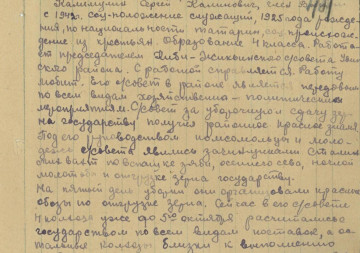 Калимулин Сергей Калинович, член
с 1943г. соц-положение служащий, 1925 года рожде
ния, по национальности татарин, соц. происхож
дение из крестьян. Образование 4 класса. Работа
ет председателем сельсовета
района. С работой справляется. Работу
любит. Его с/совет в районе является передовым
по всем видам хозяйственно-политических
мероприятий. С/совет за уборочную сдачу
на государству получил районное красное знамя
Под его руководством комсомольцы и моло-
дежь с/совета явились
по вспашке зяби, осеннего сева, ночной
молотьбы и отгрузке зерна государству.
На пятый день уборки они организовали красные
обозы по отгрузке зерна. Сейчас в его с/совете
4 колхоза уже до 5го октября рассчитались с
государством по всем видам поставок, а ос
тальные колхозы близки к выполнению